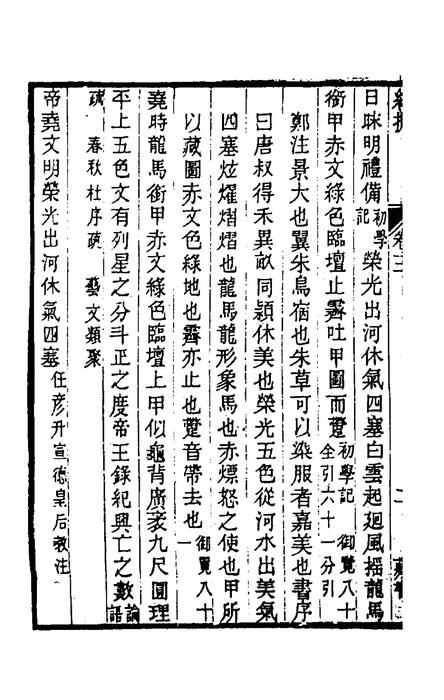 日昧明禮備初學記榮光出河休氣四塞白雲起廻風搖龍馬
銜甲赤文綠色臨壇止霽吐甲圖而蹛初學記 御覽八十全引六十一分引
鄭注景大也翼朱鳥宿也朱草可以染服者嘉美也書序
曰唐叔得禾異畝同穎休美也榮光五色從河水出美氣
四塞炫燿熠熠也龍馬龍形象馬也赤熛怒之使也甲所
以藏圖赤文色綠地也霽亦止也蹛音帶去也御覽八十一
堯時龍馬銜甲赤文綠色臨壇上甲似龜背廣袤九尺圓理
平上五色文有列星之分斗正之度帝王錄紀興亡之數論語
疏 春秋杜序疏 藝文類聚
帝堯文明榮光出河休氣四塞任彥升宣德皇后敎注
卷三